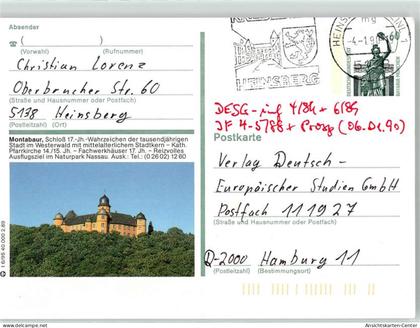 Absender
(Vorwahl) (Rufnummer)
Christian Lorenz
Oberbrucher Str. 60
(Straße und Hausnummer oder Postfach)
5138 Heinsberg
(Postleitzahl) (Ort)
Montabaur, Schloß 17. Jh.-Wahrzeichen der tausendjährigen
Stadt im Westerwald mit mittelalterlichem Stadtkern – Kath.
Pfarrkirche 14./15. Jh. – Fachwerkhäuser 17. Jh. – Reizvolles
Ausflugsziel im Naturpark Nassau. Ausk.: Tel.: (0 26 02) 12 60
HEINSBERG
HEINSBERG
mg
-4-1.90
60
DESG-inf 4/84 + 6/89
JF 4-5/88 + Prosp (06. De. 90)
Postkarte
Verlag Deutsch-
Europäischer Studien GmbH
Postfach 11 1927
(Straße und Hausnummer oder Postfach)
D-2000 Hamburg 11
(Postleitzahl) (Bestimmungsort)
Ansichtskarten-Center